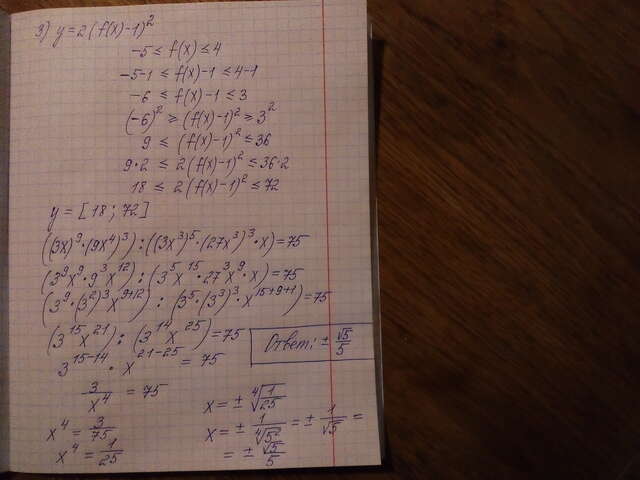 3) y=2(f(x)-1)²
-5 ≤ f(x) ≤ 4
-5-1 ≤ f(x)-1 ≤ 4-1
-6 ≤ f(x)-1 ≤ 3
(-6)² ≥ (f(x)-1)² ≥ 3²
9 ≤ (f(x)-1)² ≤ 36
9·2 ≤ 2(f(x)-1)² ≤ 36·2
18 ≤ 2(f(x)-1)² ≤ 72
y = [18; 72]
((3x)⁹·(9x⁴)³):((3x³)⁵·(27x³)³·x)=75
(3⁹x⁹·9³x¹²):(3⁵x¹⁵·27³x⁹·x)=75
(3⁹·(3²)³x⁹⁺¹²):(3⁵·(3³)³·x¹⁵⁺⁹⁺¹)=75
(3¹⁵x²¹):(3¹⁴x²⁵)=75
3¹⁵⁻¹⁴·x²¹⁻²⁵=75
3/x⁴ = 75
x⁴ = 3/75
x⁴ = 1/25
x = ± ⁴√(1/25)
x = ± 1/⁴√5² = ± 1/√5 =
= ± √5/5
Ответ: ± √5/5